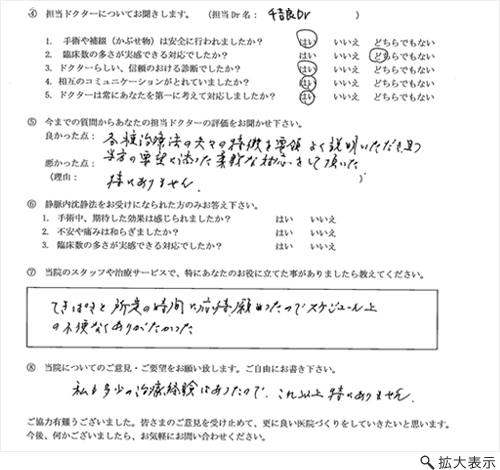 ④ 担当ドクターについてお聞きします。 (担当Dr名: Dr )
1. 手術や補綴(かぶせ物)は安全に行われましたか? はい いいえ どちらでもない
2. 臨床数の多さが実感できる対応でしたか? はい いいえ どちらでもない
3. ドクターらしい、信頼のおける診断でしたか? はい いいえ どちらでもない
4. 相互のコミュニケーションがとれていましたか? はい いいえ どちらでもない
5. ドクターは常にあなたを第一に考えて対応しましたか? はい いいえ どちらでもない
⑤ 今までの質問からあなたの担当ドクターの評価をお聞かせ下さい。
良かった点: 各種治療法の夫々の特徴を要領よく説明いただき且つ
当方の要望に添った柔軟な対応をして頂いた
悪かった点:
(理由: 特にありません。 )
⑥ 静脈内沈静法をお受けになられた方のみお答え下さい。
1. 手術中、期待した効果は感じられましたか? はい いいえ
2. 不安や痛みは和らぎましたか? はい いいえ
3. 臨床数の多さが実感できる対応でしたか? はい いいえ
⑦ 当院のスタッフや治療サービスで、特にあなたのお役に立てた事がありましたら教えてください。
てきぱきと所定の時間に応待願えたのでスケジュール上
の不便なくありがたかった
⑧ 当院についてのご意見・ご要望をお願い致します。ご自由にお書き下さい。
私も多少の治療経験はあったので、これ以上特にありません。
ご協力有難うございました。皆さまのご意見を受け止めて、更に良い医院づくりをしていきたいと思います。
今後、何かございましたら、お気軽にお問い合わせください。
拡大表示